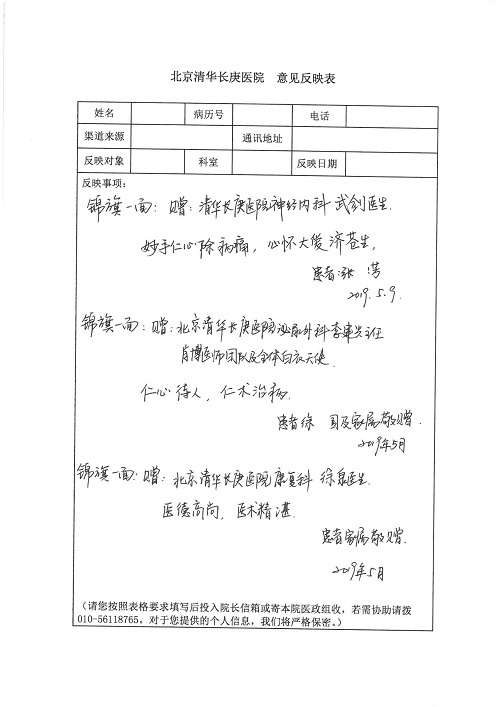 北京清华长庚医院 意见反映表
姓名 病历号 电话
渠道来源 通讯地址
反映对象 科室 反映日期
反映事项:
锦旗一面: 赠: 清华长庚医院神经内科 武剑医生.
妙手仁心除病痛, 心怀大爱济苍生,
患者: 张 芳
2019.5.9.
锦旗一面: 赠: 北京清华长庚医院泌尿外科李建兴主任
肖博医师团队及全体白衣天使.
仁心待人, 仁术治病.
患者徐 国及家属敬赠.
2019年5月
锦旗一面: 赠: 北京清华长庚医院康复科 徐泉医生.
医德高尚, 医术精湛.
患者家属敬赠.
2019年5月
(请您按照表格要求填写后投入院长信箱或寄本院医政组收,若需协助请拨
010-56118765。对于您提供的个人信息,我们将严格保密。)